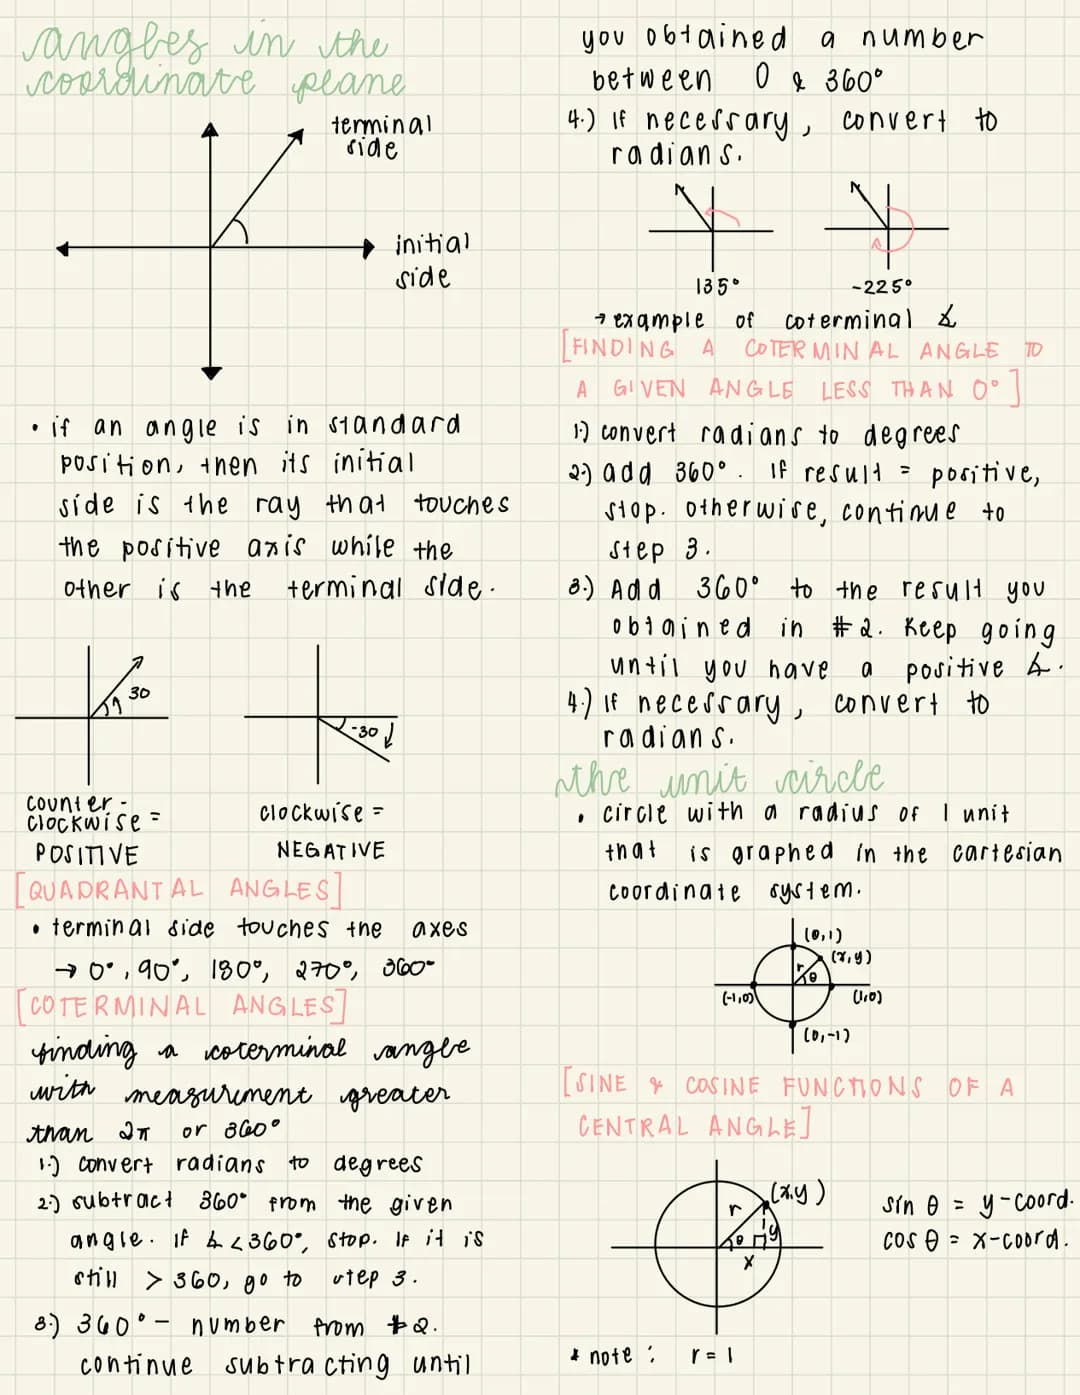 angles in the
coordinate plane
terminal
side
initial
side
• if an angle is in standard
position, then its initial
side is the ray that touches
the positive axis while the
other is the terminal side.
30
-30
counter-
clockwise =
POSITIVE
clockwise =
NEGATIVE
[QUADRANTAL ANGLES]
• terminal side touches the axes
→ 0°, 90°, 180°, 270°, 360°
[COTERMINAL ANGLES]
finding a coterminal angle
with measurement greater
than 2π or 360°
1.) convert radians to degrees
2.) subtract 360° from the given
angle. If ∡ <360°, stop. If it is
still > 360, go to step 3.
3.) 360° - number from #2.
continue subtracting until
you obtained a number
between 0 & 360°
4.) If necessary, convert to
radians.
135°
-225°
→ example of coterminal ∡
[FINDING A COTERMINAL ANGLE TO
A GIVEN ANGLE LESS THAN 0°]
1.) convert radians to degrees
2.) add 360°. If result = positive,
stop. otherwise, continue to
step 3.
3.) Add 360° to the result you
obtained in #2. Keep going
until you have a positive ∡.
4.) If necessary, convert to
radians.
the unit circle
• circle with a radius of 1 unit
that is graphed in the cartesian
coordinate system.
(0,1)
(x,y)
r
θ
(-1,0)
(1,0)
(0,-1)
[SINE & COSINE FUNCTIONS OF A
CENTRAL ANGLE]
(x,y)
r
θ
y
x
sin θ = y-coord.
cos θ = x-coord.
* note: r = 1